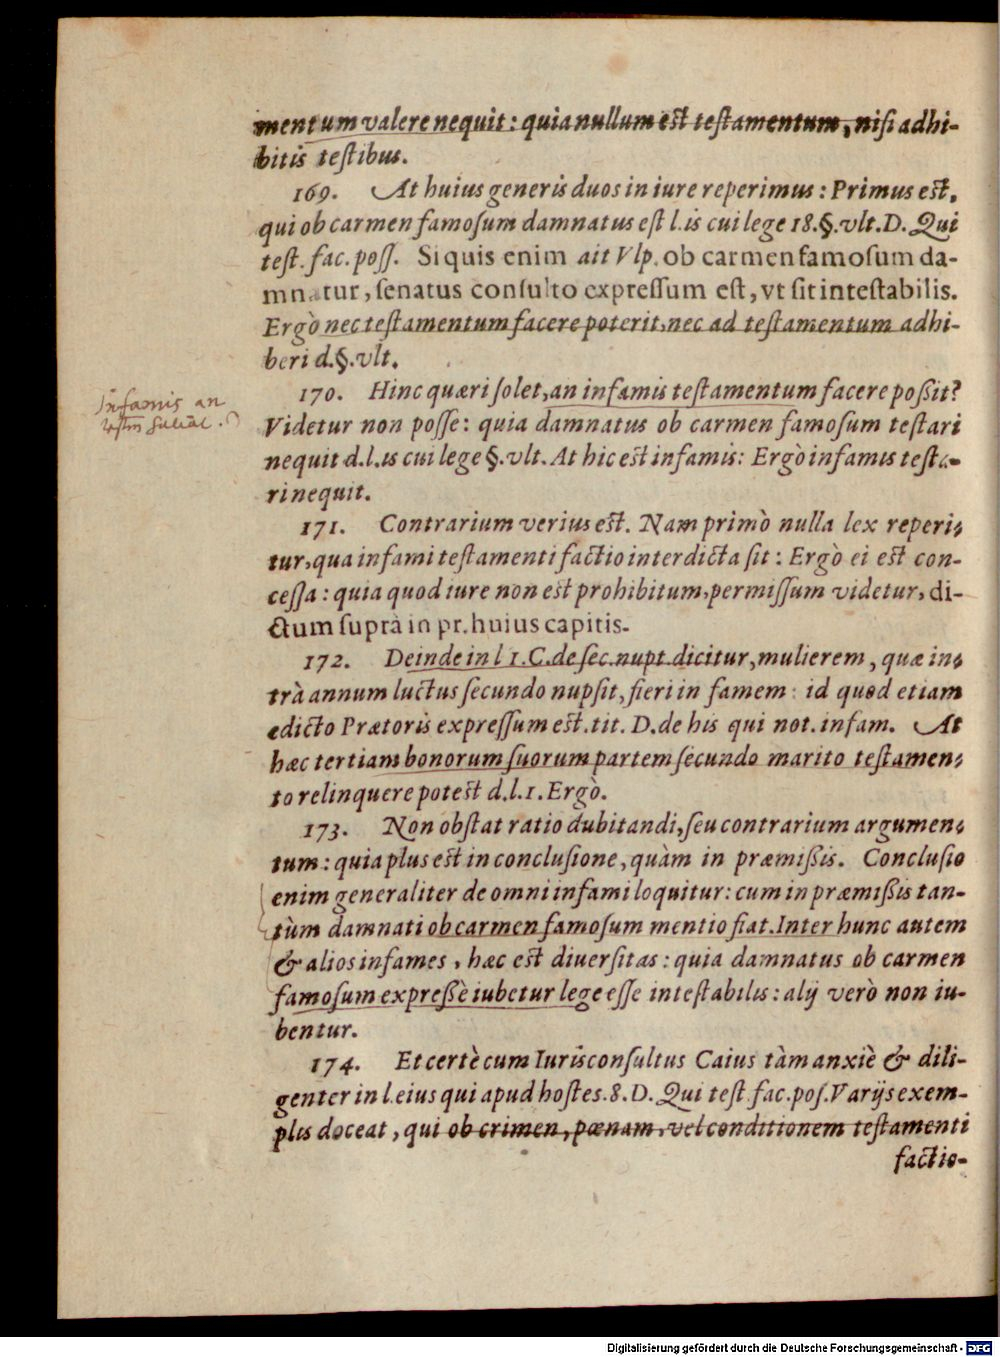 mentum valere nequit: quia nullum est testamentum, nisi adhi-
bitis testibus.
169. At huius generis duos in iure reperimus: Primus est,
qui ob carmen famosum damnatus est l. is cui lege 18. §. vlt. D. Qui
test. fac. poss. Si quis enim ait Vlp. ob carmen famosum da-
mnatur, senatus consulto expressum est, vt sit intestabilis.
Ergò nec testamentum facere poterit, nec ad testamentum adhi-
beri d. §. vlt.
170. Hinc quæri solet, an infamis testamentum facere poßit?
Videtur non posse: quia damnatus ob carmen famosum testari
nequit d. l. is cui lege §. vlt. At hic est infamis: Ergò infamis testa-
ri nequit.
Infamis an
171. Contrarium verius est. Nam primò nulla lex reperi-
tur, qua infami testamenti factio interdicta sit: Ergò ei est con-
cessa: quia quod iure non est prohibitum, permissum videtur, di-
ctum suprà in pr. huius capitis.
172. Deinde in l 1. C. de sec. nupt. dicitur, mulierem, quæ in-
trà annum luctus secundo nupsit, fieri in famem: id quod etiam
edicto Prætoris expressum est. tit. D. de his qui not. infam. At
hæc tertiam bonorum suorum partem secundo marito testamen-
to relinquere potest d. l. 1. Ergò.
173. Non obstat ratio dubitandi, seu contrarium argumen-
tum: quia plus est in conclusione, quàm in præmißis. Conclusio
enim generaliter de omni infami loquitur: cum in præmißis tan-
tùm damnati ob carmen famosum mentio fiat. Inter hunc autem
& alios infames, hæc est diuersitas: quia damnatus ob carmen
famosum expreßè iubetur lege esse intestabilis: alij verò non iu-
bentur.
174. Et certè cum Iurisconsultus Caius tàm anxiè & dili-
genter in l. eius qui apud hostes. 8. D. Qui test. fac. pos. Varijs exem-
plis doceat, qui ob crimen, pœnam, vel conditionem testamenti
factio-
Digitalisierung gefördert durch die Deutsche Forschungsgemeinschaft - DFG